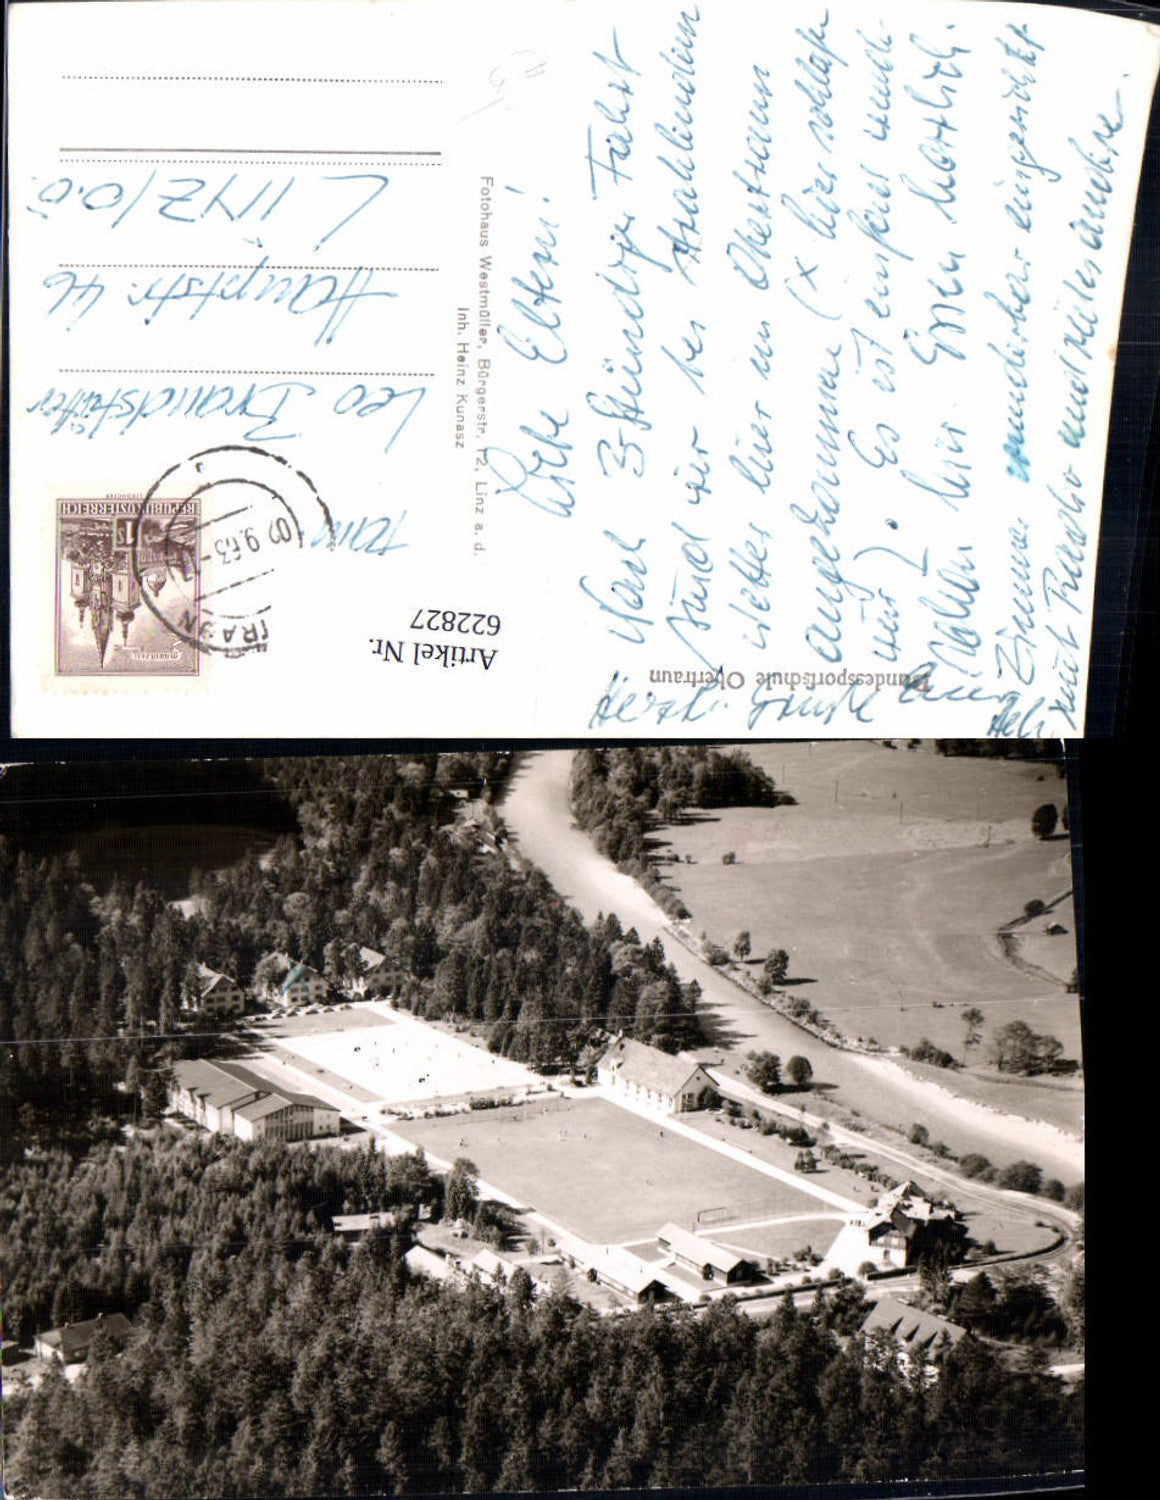 Bundessportschule Obertraun
Liebe Eltern!
Nach 3 stündiger Fahrt
sind wir bei strahlendem
Wetter hier in Obertraun
angekommen (x hier schlafe
wir). Es ist einfach
hier. Essen herrlich.
Zimmer wunderbar eingerichtet
mit Radio und vieles andere.
Herzl. Grüße
Fotohaus Westmüller, Bürgerstr. 12, Linz a. d.
Inh. Heinz Kunasz
Artikel Nr.
622827
REPUBLIK ÖSTERREICH
1 S
MARIAZELL
9.63
TRAUN
Fam
Leo Brandstätter
Hauptstr. 46
LINZ/O.Ö.